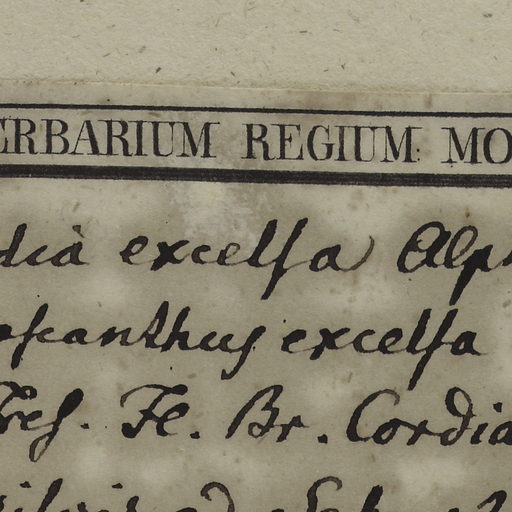 ERBARIUM REGIUM MO
dia excelsa Alph
oscanthus excelsa
Fres. Fl. Br. Cordia